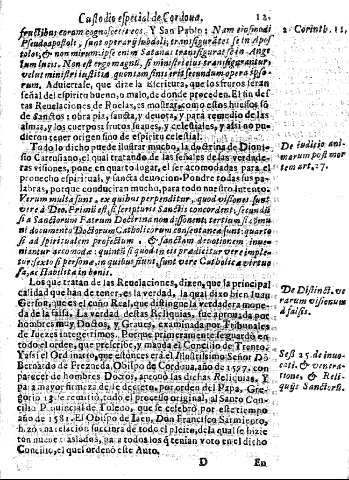 Custodio especial de Cordoua. 12.
fructibus eorum cognoscetis eos. Y San Pablo: Nam eiusmodi
Pseudoapostoli, sunt operarij subdoli, transfigurātes se in Apos
tolos, & non mirum: ipse enim Satanas transfigurat se in Ange
lum lucis. Non est ergo magnū, si ministri eius transfigurantur,
velut ministri iustitiæ quorum finis erit secundum opera ipso-
rum. Aduiertase, que dize la escritura, que los frutos seràn
señal del espiritu bueno, o malo, de donde proceden. El fin des
tas Reuelaciones de Roelas, es mostrar, como estos huessos sō
de santos: obra pia, santa, y deuota, y para remedio de las
almas, y los cuerpos frutos suaues, y celestiales, y assi no pu-
dieron tener origen sino de espiritu celestial.
Todo lo dicho puede ilustrar mucho, la doctrina de Dioni-
sio Cartusiano, el qual tratando de las señales de las verdade-
ras visiones, pone en quarto lugar, el ser acomodadas para el
prouecho espiritual, y santa deuocion. Pondre todas sus pa-
labras, porque conduciran mucho, para todo nuestro intento.
Verum multa sunt, ex quibus perpenditur, quod visiones sunt
veræ à Deo. Primū est, si scripturis Sanctis concordent: secundū
si à Sanctorum Patrum Doctrina non dissonent: tertium si omni
ni documento Doctorum Catholicorum consentanea sunt: quarto
si ad spiritualem profectum, & sanctam deuotionem inue-
niantur accomodæ: quintū si quod in eis prædicitur verè imple-
tur: sexto si persona, in quibus fiunt, sunt verè Catholicæ virtuo
sæ, ac stabilitæ in bonis.
Los que tratan de las Reuelaciones, dizen, que la principal
calidad que han de tener, es la verdad, la qual dixo bien Iuan
Gerson, que es el cuño Real, que distingue la verdadera mone-
da de la falsa. La verdad destas Reliquias, fue aprouada por
hombres muy Doctos, y Graues, examinada por Tribunales
de Iuezes integerrimos. Porque primeramente se guardò en
todo el orden, que prescriue, y manda el Concilio de Trento.
Y assi el Ordinario, que entonces era el Illustrissimo Señor Dō
Bernardo de Frezneda, Obispo de Cordoua, año de 1577. con
parecer de hombres Doctos, aprouò las dichas Reliquias. Y
para mayor firmeza deste decreto, por orden del Papa, Gre-
gorio 13. se remitiò, todo el processo original, al Santo Con-
cilio Prouincial de Toledo, que se celebrò por este tiempo
año de 1581. El Obispo de Iaen, Don Francisco Sarmiento,
hizo vna relacion succincta de todo el pleito, de la qual se hizie
ron nueue traslados, para todos los q̃ tenian voto en el dicho
Concilio, el qual ordenò este Auto.
D En
2. Corinth. 11,
De iudicio ani
marum post mor
tem art. 7.
De Distinct. ve
rarum visionum
à falsis.
Sess. 25. de inuo-
cat. & venera-
tione, & Reli-
quijs Sanctorū.